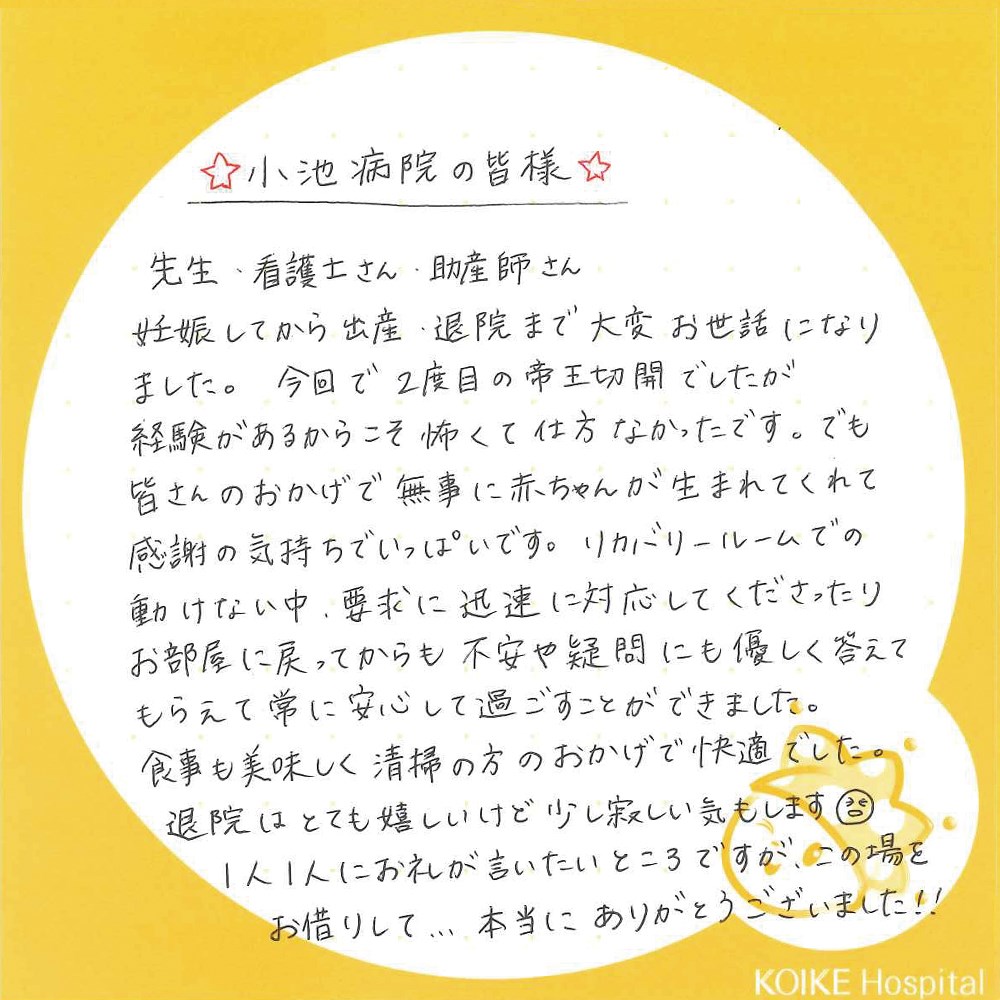 ☆小池病院の皆様☆
先生・看護士さん・助産師さん
妊娠してから出産・退院まで大変お世話になり
ました。今回で2度目の帝王切開でしたが
経験があるからこそ怖くて仕方なかったです。でも
皆さんのおかげで無事に赤ちゃんが生まれてくれて
感謝の気持ちでいっぱいです。リカバリールームでの
動けない中、要求に迅速に対応してくださったり
お部屋に戻ってからも不安や疑問にも優しく答えて
もらえて常に安心して過ごすことができました。
食事も美味しく清掃の方のおかげで快適でした。
退院はとても嬉しいけど少し寂しい気もします
1人1人にお礼が言いたいところですが、この場を
お借りして...本当にありがとうございました!!
KOIKE Hospital